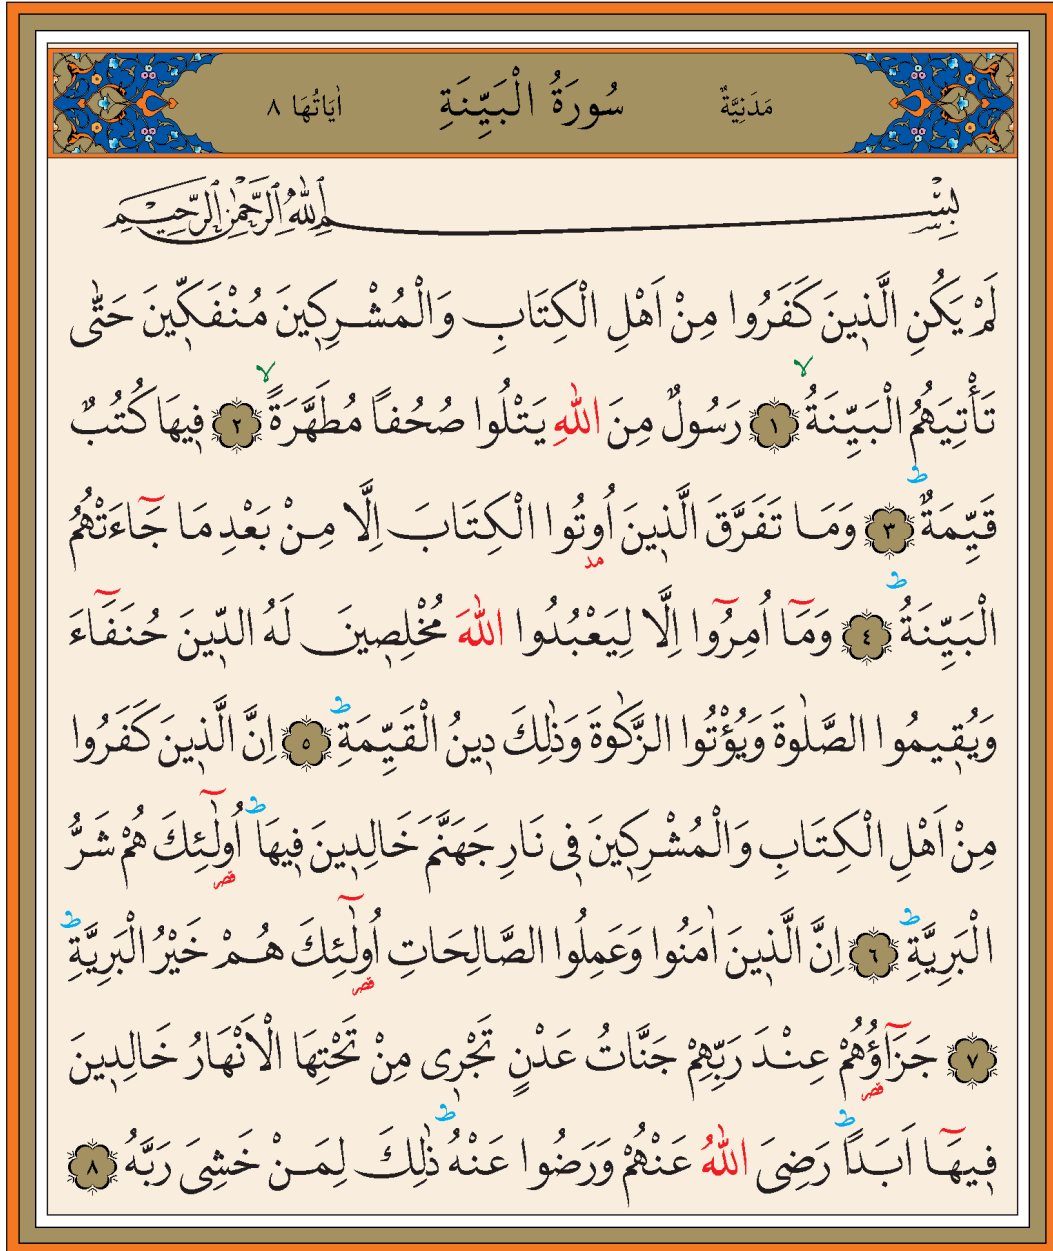 مَدَنِيَّةٌ سُورَةُ الْبَيِّنَةِ اٰيَاتُهَا ٨
بِسْمِ اللّٰهِ الرَّحْمٰنِ الرَّحِيمِ
لَمْ يَكُنِ الَّذ۪ينَ كَفَرُوا مِنْ اَهْلِ الْكِتَابِ وَالْمُشْرِك۪ينَ مُنْفَكّ۪ينَ حَتّٰى
تَأْتِيَهُمُ الْبَيِّنَةُۙ ﴿١﴾ رَسُولٌ مِنَ اللّٰهِ يَتْلُوا صُحُفاً مُطَهَّرَةًۙ ﴿٢﴾ ف۪يهَا كُتُبٌ
قَيِّمَةٌۜ ﴿٣﴾ وَمَا تَفَرَّقَ الَّذ۪ينَ اُو۫تُوا الْكِتَابَ اِلَّا مِنْ بَعْدِ مَا جَٓاءَتْهُمُ
مد
الْبَيِّنَةُۜ ﴿٤﴾ وَمَٓا اُمِرُٓوا اِلَّا لِيَعْبُدُوا اللّٰهَ مُخْلِص۪ينَ لَهُ الدّ۪ينَ حُنَفَٓاءَ
وَيُق۪يمُوا الصَّلٰوةَ وَيُؤْتُوا الزَّكٰوةَ وَذٰلِكَ د۪ينُ الْقَيِّمَةِۜ ﴿٥﴾ اِنَّ الَّذ۪ينَ كَفَرُوا
مِنْ اَهْلِ الْكِتَابِ وَالْمُشْرِك۪ينَ ف۪ي نَارِ جَهَنَّمَ خَالِد۪ينَ ف۪يهَاۜ اُو۬لٰٓئِكَ هُمْ شَرُّ
قصر
الْبَرِيَّةِۜ ﴿٦﴾ اِنَّ الَّذ۪ينَ اٰمَنُوا وَعَمِلُوا الصَّالِحَاتِ اُو۬لٰٓئِكَ هُمْ خَيْرُ الْبَرِيَّةِۜ
قصر
﴿٧﴾ جَزَٓاؤُ۬هُمْ عِنْدَ رَبِّهِمْ جَنَّاتُ عَدْنٍ تَجْر۪ي مِنْ تَحْتِهَا الْاَنْهَارُ خَالِد۪ينَ
قصر
ف۪يهَٓا اَبَداًۜ رَضِيَ اللّٰهُ عَنْهُمْ وَرَضُوا عَنْهُۜ ذٰلِكَ لِمَنْ خَشِيَ رَبَّهُ ﴿٨﴾